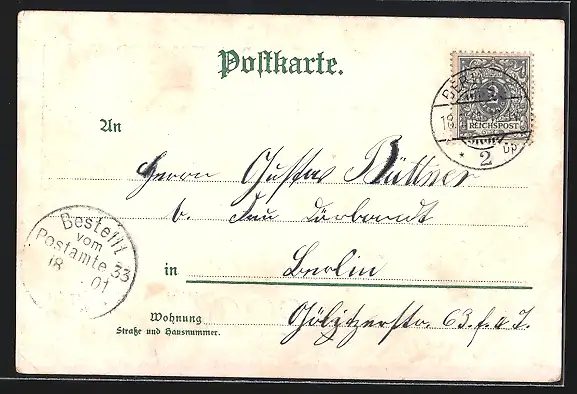 Postkarte.
BERLIN
18.
2
REICHSPOST
2
An
Herrn Gustav Büttner
b. Frau
Bestellt
vom
Postamte 33
18 01
in Berlin
Wohnung
Straße und Hausnummer.
Görlitzerstr. 63.